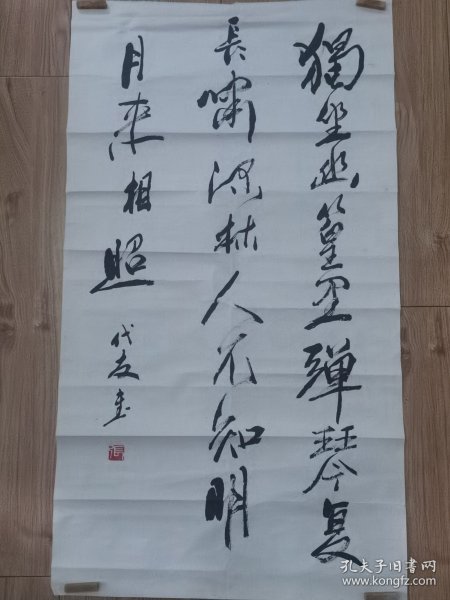 獨坐幽篁里彈琴复
長嘯深林人不知明
月來相照
代友書
孔夫子旧书网
www.kongfz.com